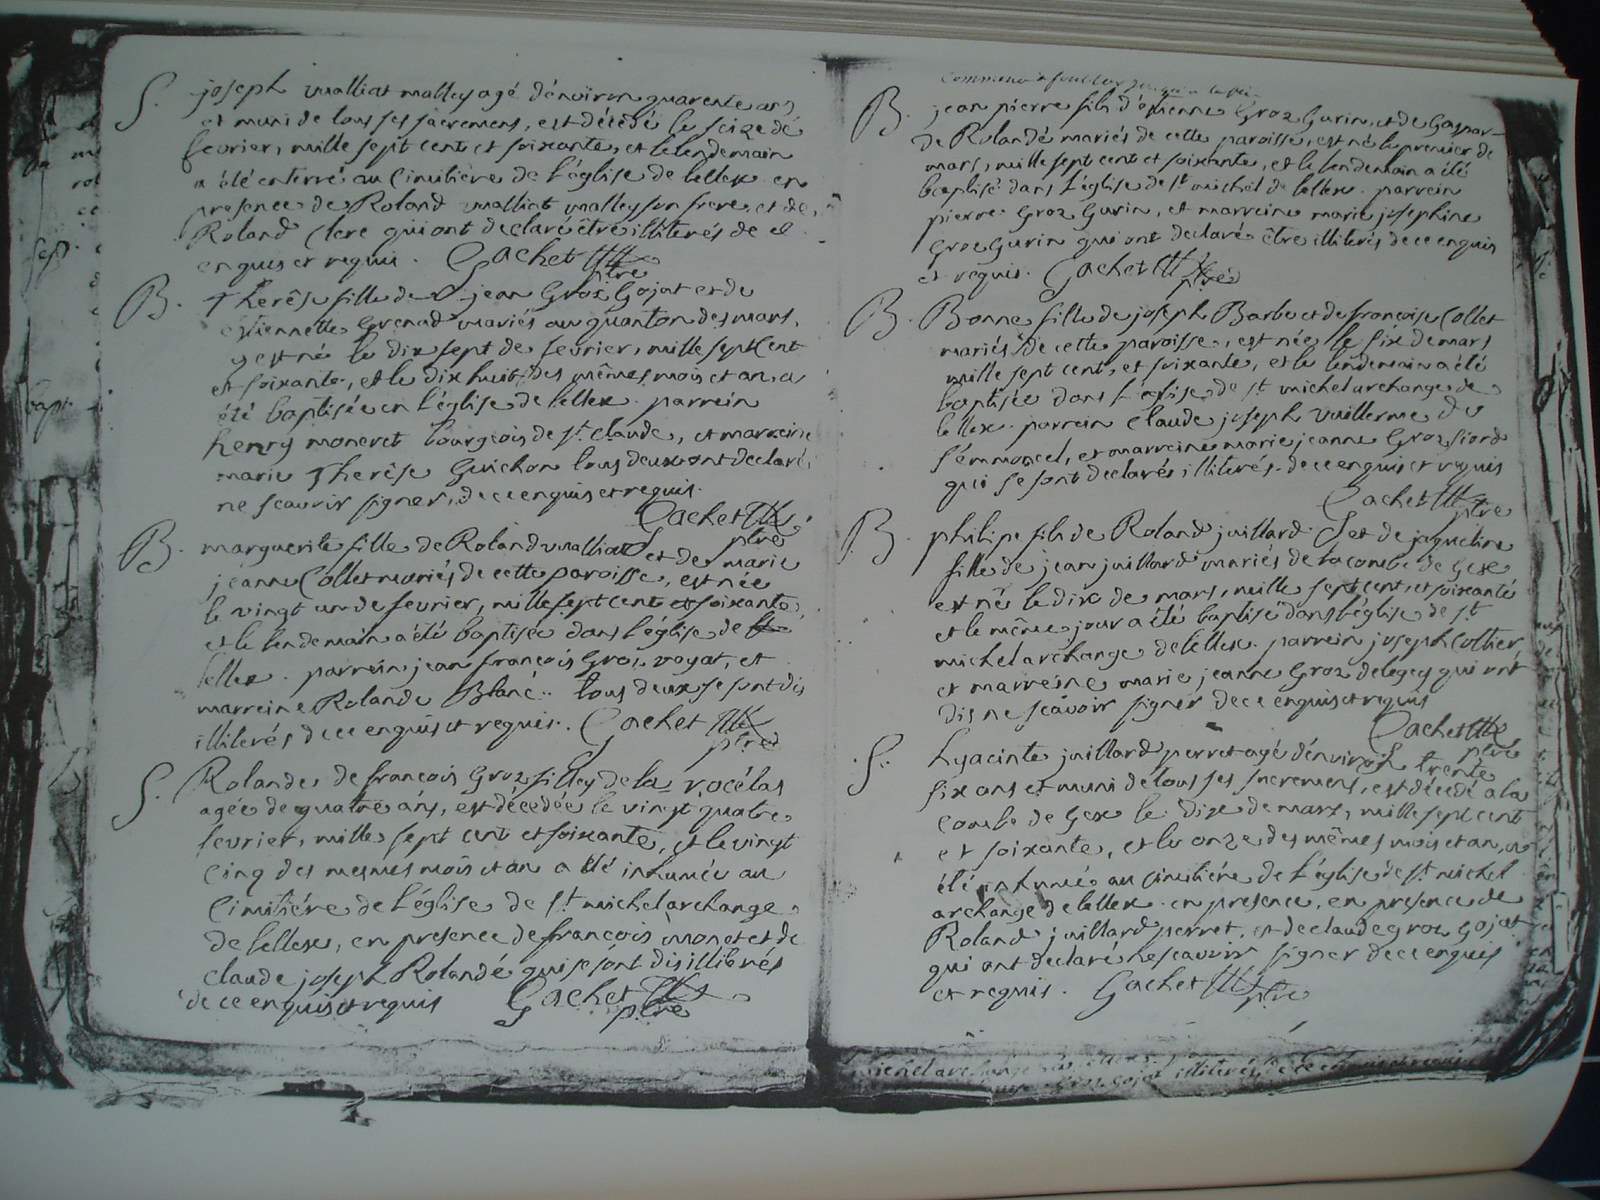 S. joseph vualliat malley agé d'environ quarente ans
et muni de tous ses sacremens, est décédé le seize de
fevrier, mille sept cent et soixante, et le lendemain
a été enterré au cimitière de l'église de lellex en
presence de Roland vualliat malley son frere, et de
Roland Clerc qui ont declaré être illiterés de ce
enquis et requis. Gachet ptre
B. Therêse fille de jean Groz Gojat et de
etiennette Grenad mariés au quanton des mars,
y est né le dix sept de fevrier, mille sept cent
et soixante, et le dix huit des mêmes mois et an, a
été baptisée en l'église de lellex. parrein
henry moneret bourgeois de st. Claude, et marreine
marie Therêse Guichon tous deux ont declaré
ne scavoir signer, de ce enquis et requis.
Gachet ptre
B. marguerite fille de Roland vualliat et de marie
jeanne Collet mariés de cette paroisse, est née
le vingt un de fevrier, mille sept cent et soixante,
et le lendemain a été baptisée dans l'église de
lellex. parrein jean françois Groz voyat, et
marreine Rolande Blanc. tous deux se sont dis
illiterés de ce enquis et requis. Gachet ptre
S. Rolande de françois Groz filley de la
agée de quatre ans, est décédée le vingt quatre
fevrier, mille sept cent et soixante, et le vingt
cinq des mesmes mois et an a été inhumée au
Cimitiére de l'église de st. michel archange
de lellex, en presence de francois monet et de
claude joseph Rolandé qui se sont dis illiterés
de ce enquis et requis Gachet ptre
B. jean pierre fils d'etienne Groz Gurin, et de Gaspar-
de Rolandé mariés de cette paroisse, est né le premier de
mars, mille sept cent et soixante, et le lendemain a été
baptisé dans l'église de st. michel de lellex. parrein
pierre Groz Gurin, et marreine marie josephine
Groz Gurin qui ont declaré être illiterés de ce enquis
et requis. Gachet ptre
B. Bonne fille de joseph Barbe et de françoise Collet
mariés de cette paroisse, est née le six de mars
mille sept cent, et soixante, et le lendemain a été
baptisée dans l'eglise, de st. michel archange de
lellex. parrein Claude joseph vuillerme du
et marreine marie jeanne Groz fiord
qui se sont declarés illiterés de ce enquis et requis
Gachet ptre
B. philipe fils de Roland juillard et de jaqueline
fille de jean juillard mariés de la combe de Gex
est né le dix de mars, mille sept cent, et soixante
et le même jour a été baptisé dans l'église de st.
michel archange de lellex. parrein joseph Cottier,
et marreine marie jeanne Groz delegey qui ont
dis ne scavoir signer de ce enquis et requis
Gachet ptre
S. hyacinte juillard perret agé d'environ trente
six ans et muni de tous ses sacremens, est décédé a la
Combe de Gex le dix de mars, mille sept cent
et soixante, et le onze des mêmes mois et an, a
été inhumé au Cimitiére de l'église de st. michel
archange de lellex en presence, en presence de
Roland juillard perret, et de claude groz Gojat
qui ont declaré ne scavoir signer de ce enquis
et requis. Gachet ptre